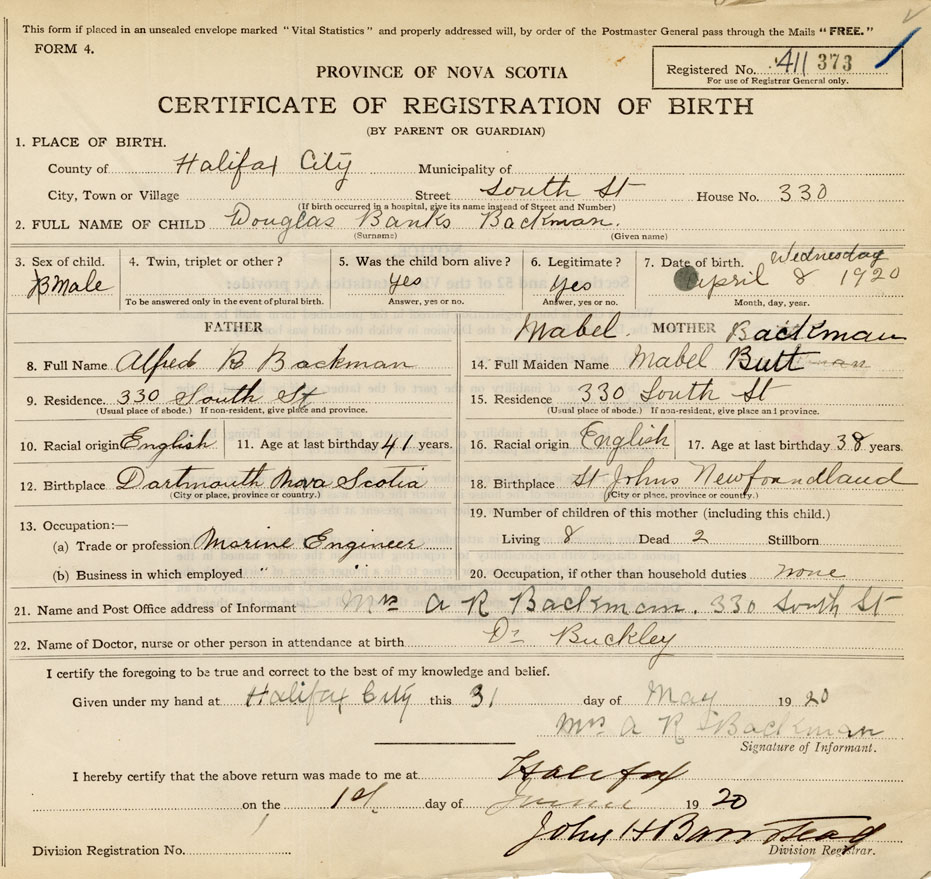 This form if placed in an unsealed envelope marked "Vital Statistics" and properly addressed will, by order of the Postmaster General pass through the Mails "FREE."
FORM 4.
Registered No. 411 373
For use of Registrar General only.
PROVINCE OF NOVA SCOTIA
CERTIFICATE OF REGISTRATION OF BIRTH
(BY PARENT OR GUARDIAN)
1. PLACE OF BIRTH.
County of Halifax City Municipality of
City, Town or Village Street South St House No. 330
(If birth occurred in a hospital, give its name instead of Street and Number)
2. FULL NAME OF CHILD Douglas Banks Backman.
(Surname) (Given name)
3. Sex of child. 4. Twin, triplet or other? 5. Was the child born alive? 6. Legitimate? 7. Date of birth. Wednesday
Male yes Yes April 8 1920
To be answered only in the event of plural birth. Answer, yes or no. Answer, yes or no. Month, day, year.
FATHER
8. Full Name Alfred B Backman
9. Residence. 330 South St
(Usual place of abode.) If non-resident, give place and province.
10. Racial origin English 11. Age at last birthday 41 years.
12. Birthplace Dartmouth Nova Scotia
(City or place, province or country.)
13. Occupation:—
(a) Trade or profession Marine Engineer
(b) Business in which employed " "
Mabel MOTHER Backman
14. Full Maiden Name Mabel Butt
15. Residence 330 South St
(Usual place of abode.) If non-resident, give place and province.
16. Racial origin English 17. Age at last birthday 38 years.
18. Birthplace St Johns Newfoundland
(City or place, province or country.)
19. Number of children of this mother (including this child.)
Living 8 Dead 2 Stillborn
20. Occupation, if other than household duties none
21. Name and Post Office address of Informant Mrs A R Backman. 330 South St
22. Name of Doctor, nurse or other person in attendance at birth Dr Buckley
I certify the foregoing to be true and correct to the best of my knowledge and belief.
Given under my hand at Halifax City this 31 day of May 1920
Mrs A R Backman
Signature of Informant.
I hereby certify that the above return was made to me at Halifax
on the 1st day of June 1920
John H Barnstead
Division Registration No. Division Registrar.